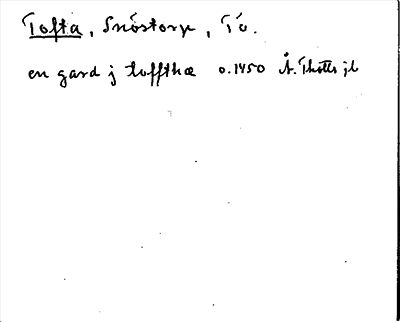 Tofta, Snöstorp, Tö.
en gard j toffthæ o.1450 Å.Thotts jb